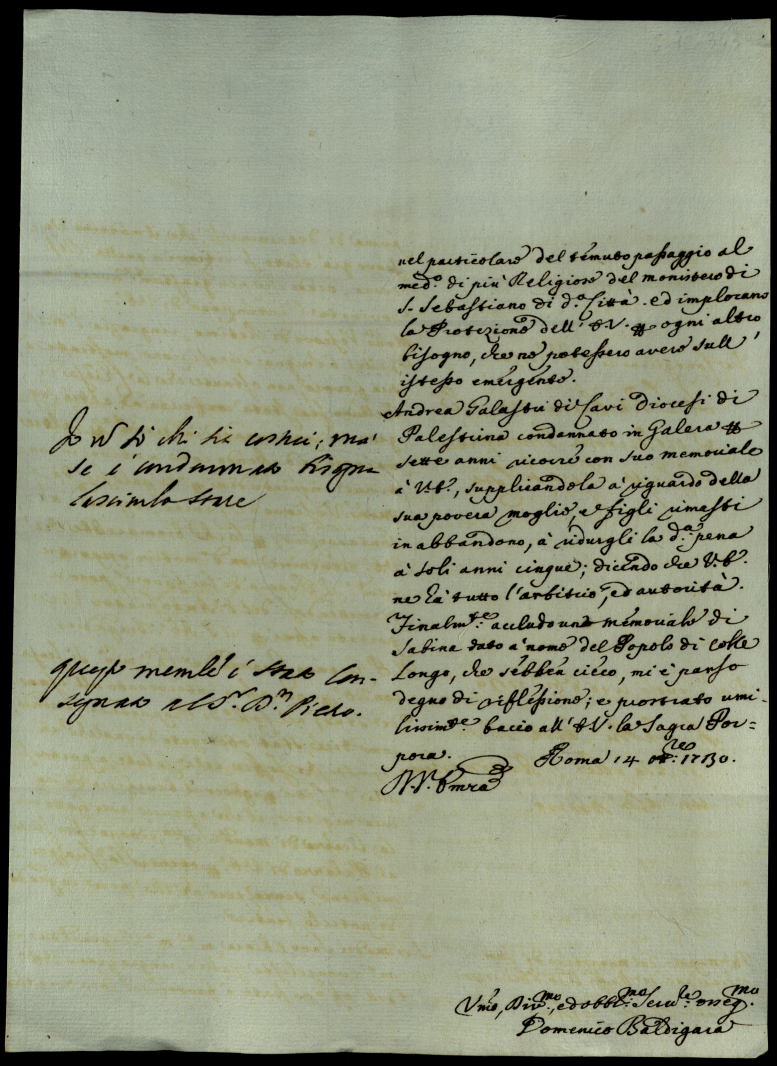 nel particolare del temuto passaggio al
med.º di più Religiose del monistero di
S. Sebastiano di d.ª Città. ed implorano
la Protezione dell' E.V. ogni altro
bisogno, che ne potessero avere sull'
istesso emergente.
Andrea Galassi di Cavi Diocesi di
Palestrina condannato in Galera
sette anni ricorre con suo memoriale
à V.E., supplicandola à riguardo della
sua povera moglie, e figli rimasti
in abbandono, à ridurgli la d.ª pena
à soli anni cinque; dicendo che V.E.
ne hà tutto l'arbitrio, ed autorità.
Io nō sò chi sia costui; mà
se è condannato bisogna
lasciarlo stare
Finalm.te accludo uno memoriale di
Sabina dato à nome del Popolo di Colle
Longo, che sebben cieco, mi è parso
degno di riflessione; e prostrato umi-
lissim.te bacio all' E.V. la Sagra Por-
pora. Roma 14 8bre 1730.
questo memle è stato con-
segnato al Sr. Dn Pietro.
V.V. Emza
Umo, Div.mo, ed obbl.mo Serv.re osseq.mo
Domenico Baldigara